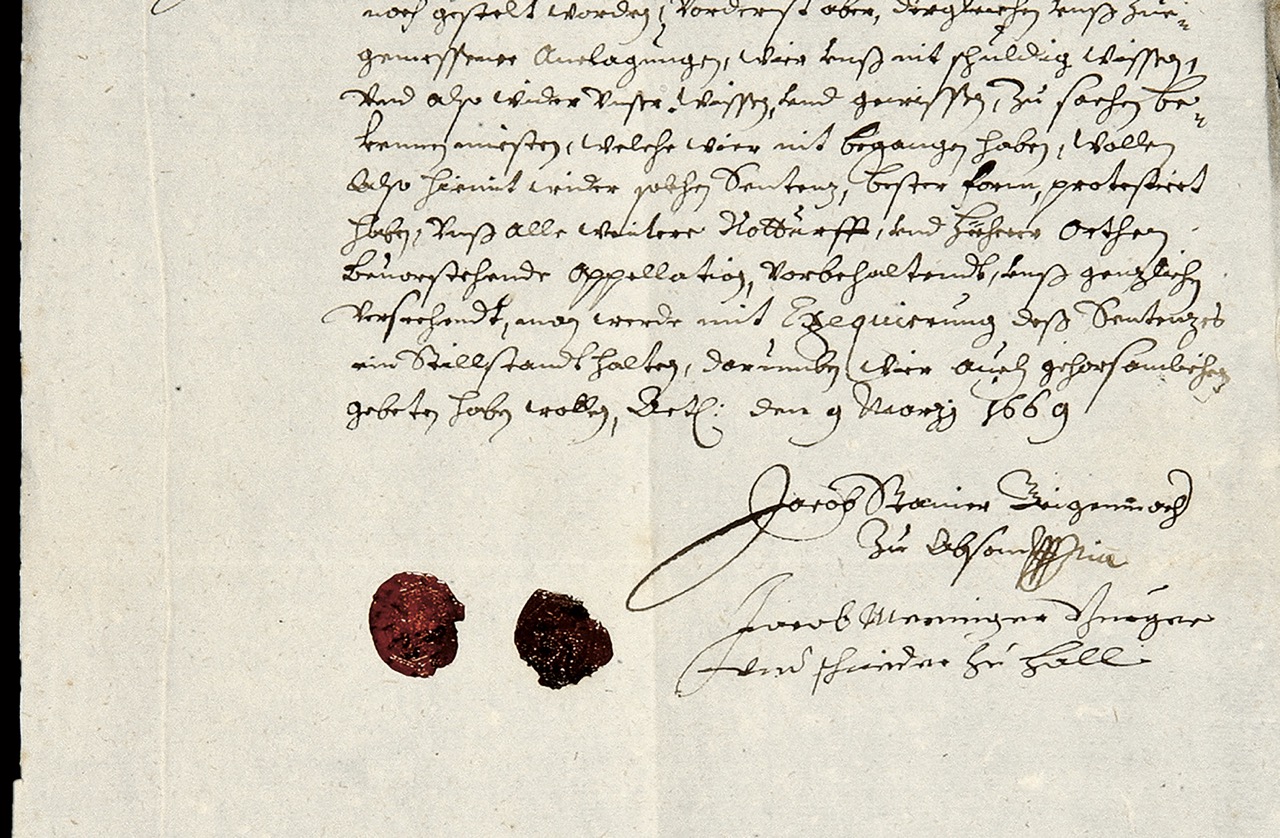 noch gestelt worden, Vorderist aber, dergleichen unß zue=
gemessener Anclagungen, wier unß nit schuldig wissen,
Und also wider Unser wissen, und gewissen, zu sachen be=
kennen müesten, welche wier nit begangen haben, wollen
also hiemit wider solchen Sentenz, bester form, protestiert
haben, Unß alle weitere Notturfft, und höherer Orthen
bevorstehende Appellation, Vorbehaltendt, unß genzlich
Versechendt, man werde mit Exequierung deß Sentenzes
ein Stillstandt halten, darumben wier auch gehorsamblichen
gebeten haben wollen, Act: den 9 Marzj 1669
Jacob Stainer Geigenmach
Zu Absam
Jacob Meringer Burger
und schneider zu Hall